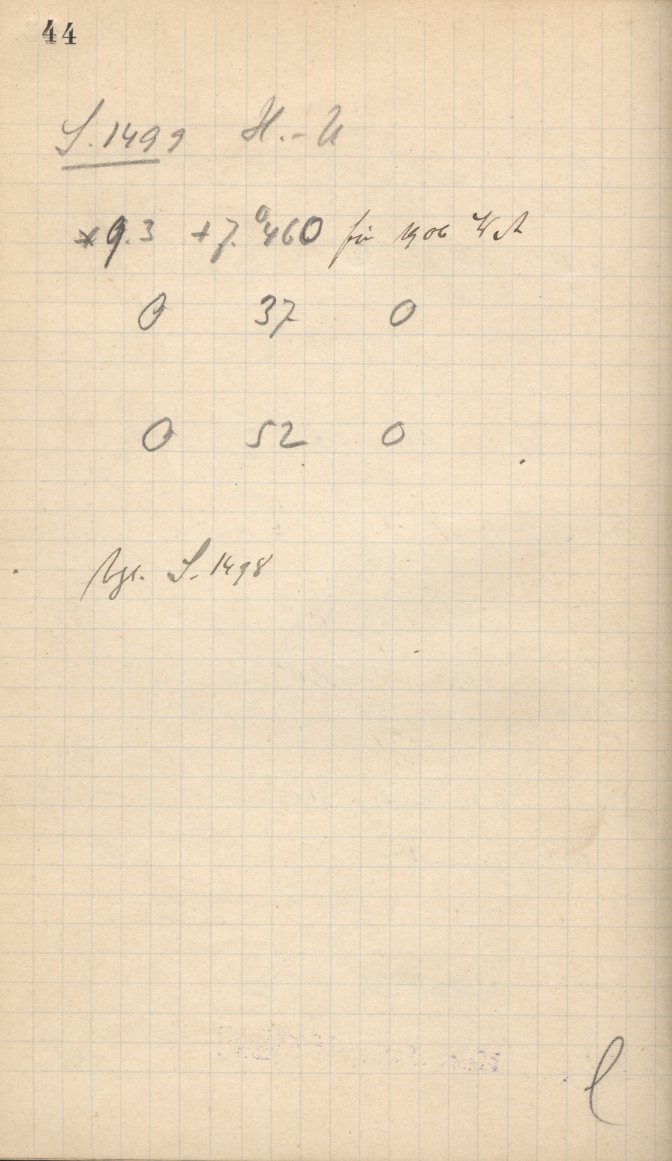 44
S. 1499 H.-U
* 9.3 +7.°460 für 1906
0 37 0
0 52 0
Vgl. S. 1498